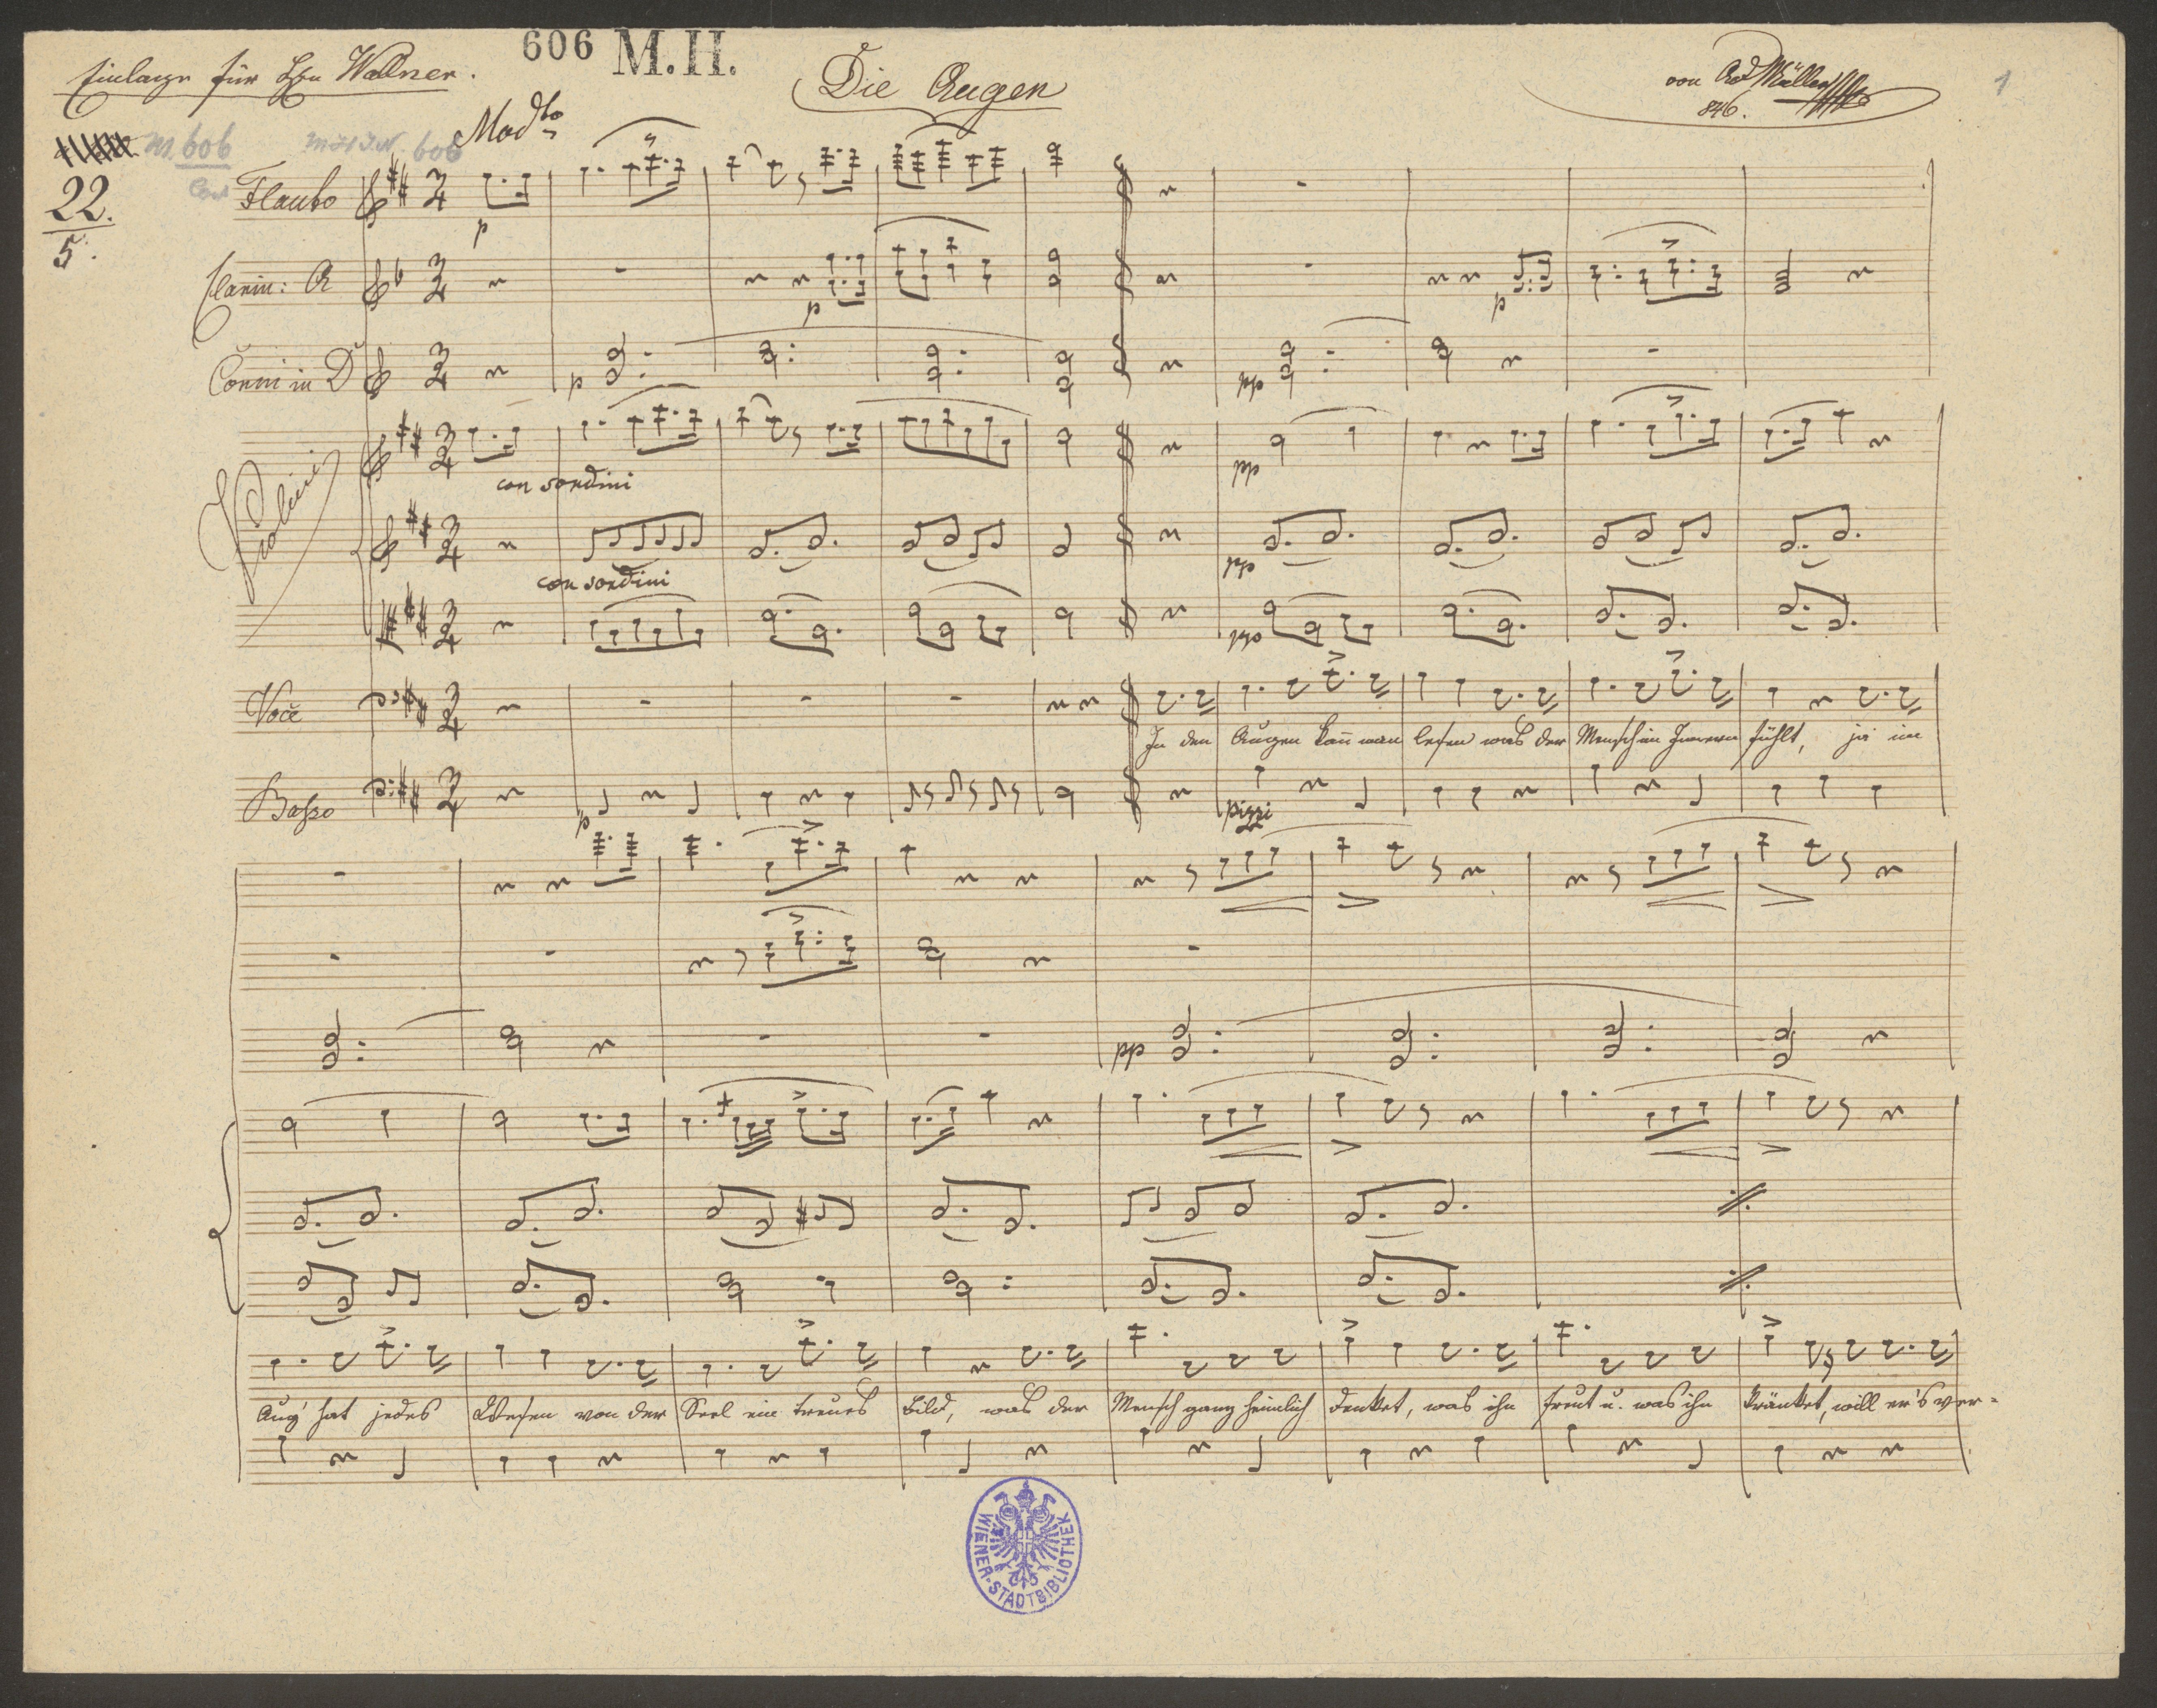 606 M.H.
Einlage für Hrn Wallner.
Die Augen
von Ad Müller
846.
1
M. 606
606
22.
5.
Modto
Flauto
p
Clarin: A
p
p
Corni in D
p
pp
Violini
con sordini
pp
con sordini
pp
pp
Voce
In den Augen kañ man lesen was der Mensch im Innern fühlt, ja im
Basso
p
pizzi
pp
Aug' hat jedes Wesen von der Seel ein treues Bild, was der Mensch ganz heimlich denket, was ihn freut u. was ihn kränket, will er's ver-
WIENER-STADTBIBLIOTHEK